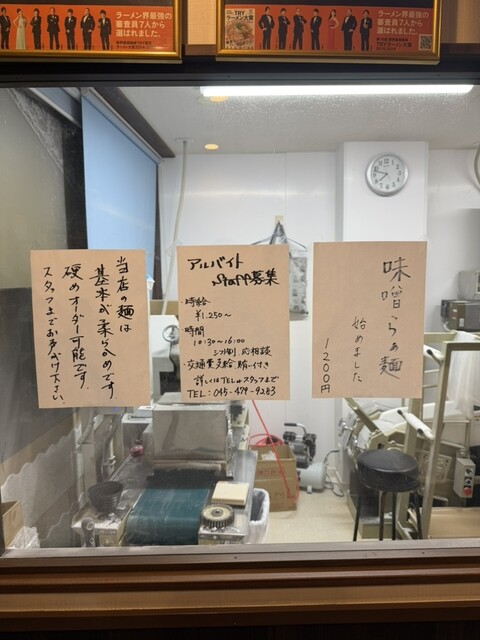 ラーメン界最強の
審査員7人から
選ばれました。
TRY
ラーメン大賞
ラーメン界最強の
審査員7人から
選ばれました。
TRY
ラーメン大賞
当店の麺は
基本が柔らかめです。
硬めオーダー可能です。
スタッフまでお声がけ下さい。
アルバイト
staff募集
時給
¥1.250〜
時間
10:30〜16:00
シフト制 応相談
・交通費支給、賄い付き
詳しくはTELorスタッフまで
TEL:045-479-9283
味噌らぁ麺
始めました
1200円